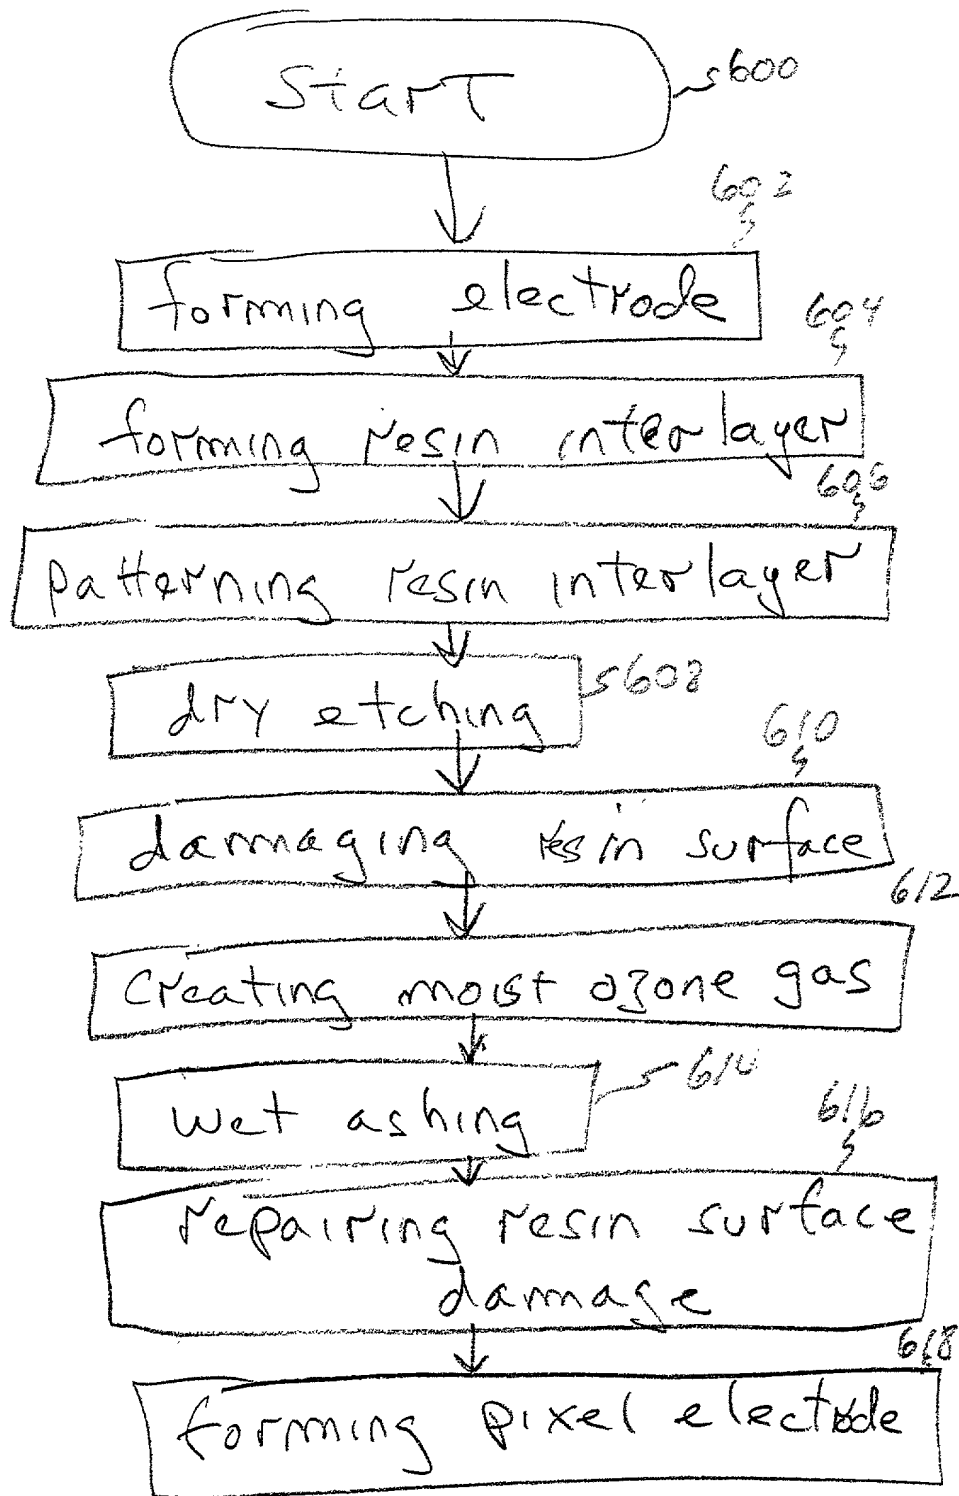 Start
600
602
forming electrode
604
forming resin interlayer
606
patterning resin interlayer
dry etching
608
610
damaging resin surface
612
Creating moist ozone gas
wet ashing
614
616
repairing resin surface
damage
618
forming pixel electrode